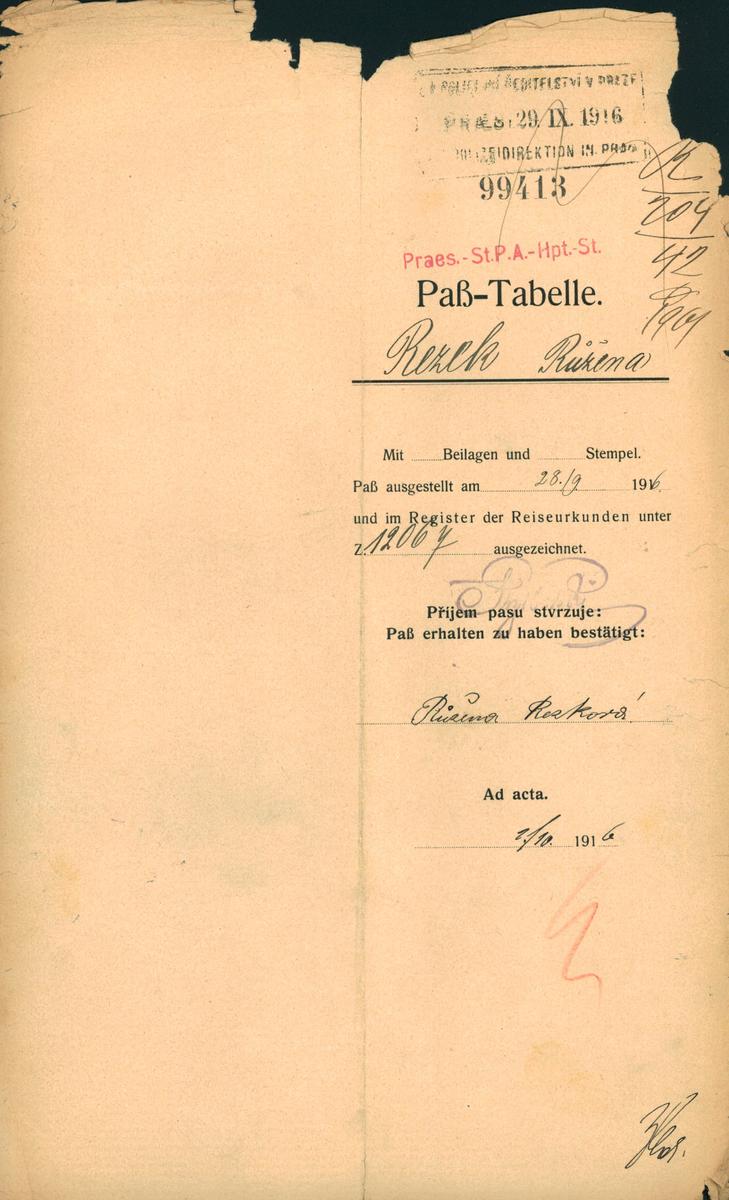 ŘEDITELSTVÍ V PRAZE
PRAES. 29. IX. 1916
POLIZEIDIREKTION IN PRAG
99413
R
204
42
1901
Praes.-St.P.A.-Hpt.-St.
Paß-Tabelle.
Rezek Růžena
Mit Beilagen und Stempel.
Paß ausgestellt am 28./9 1916.
und im Register der Reiseurkunden unter
Z. 12067 ausgezeichnet.
Příjem pasu stvrzuje:
Paß erhalten zu haben bestätigt:
Růžena Rezková
Ad acta.
2/10. 1916